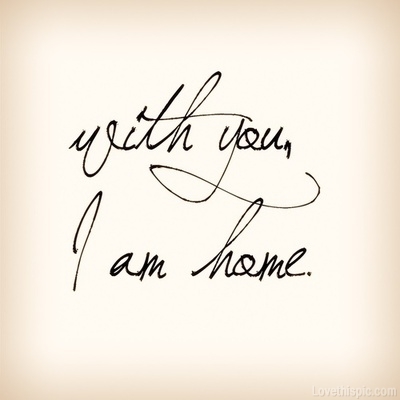 with you,
I am home.
Lovethispic.com